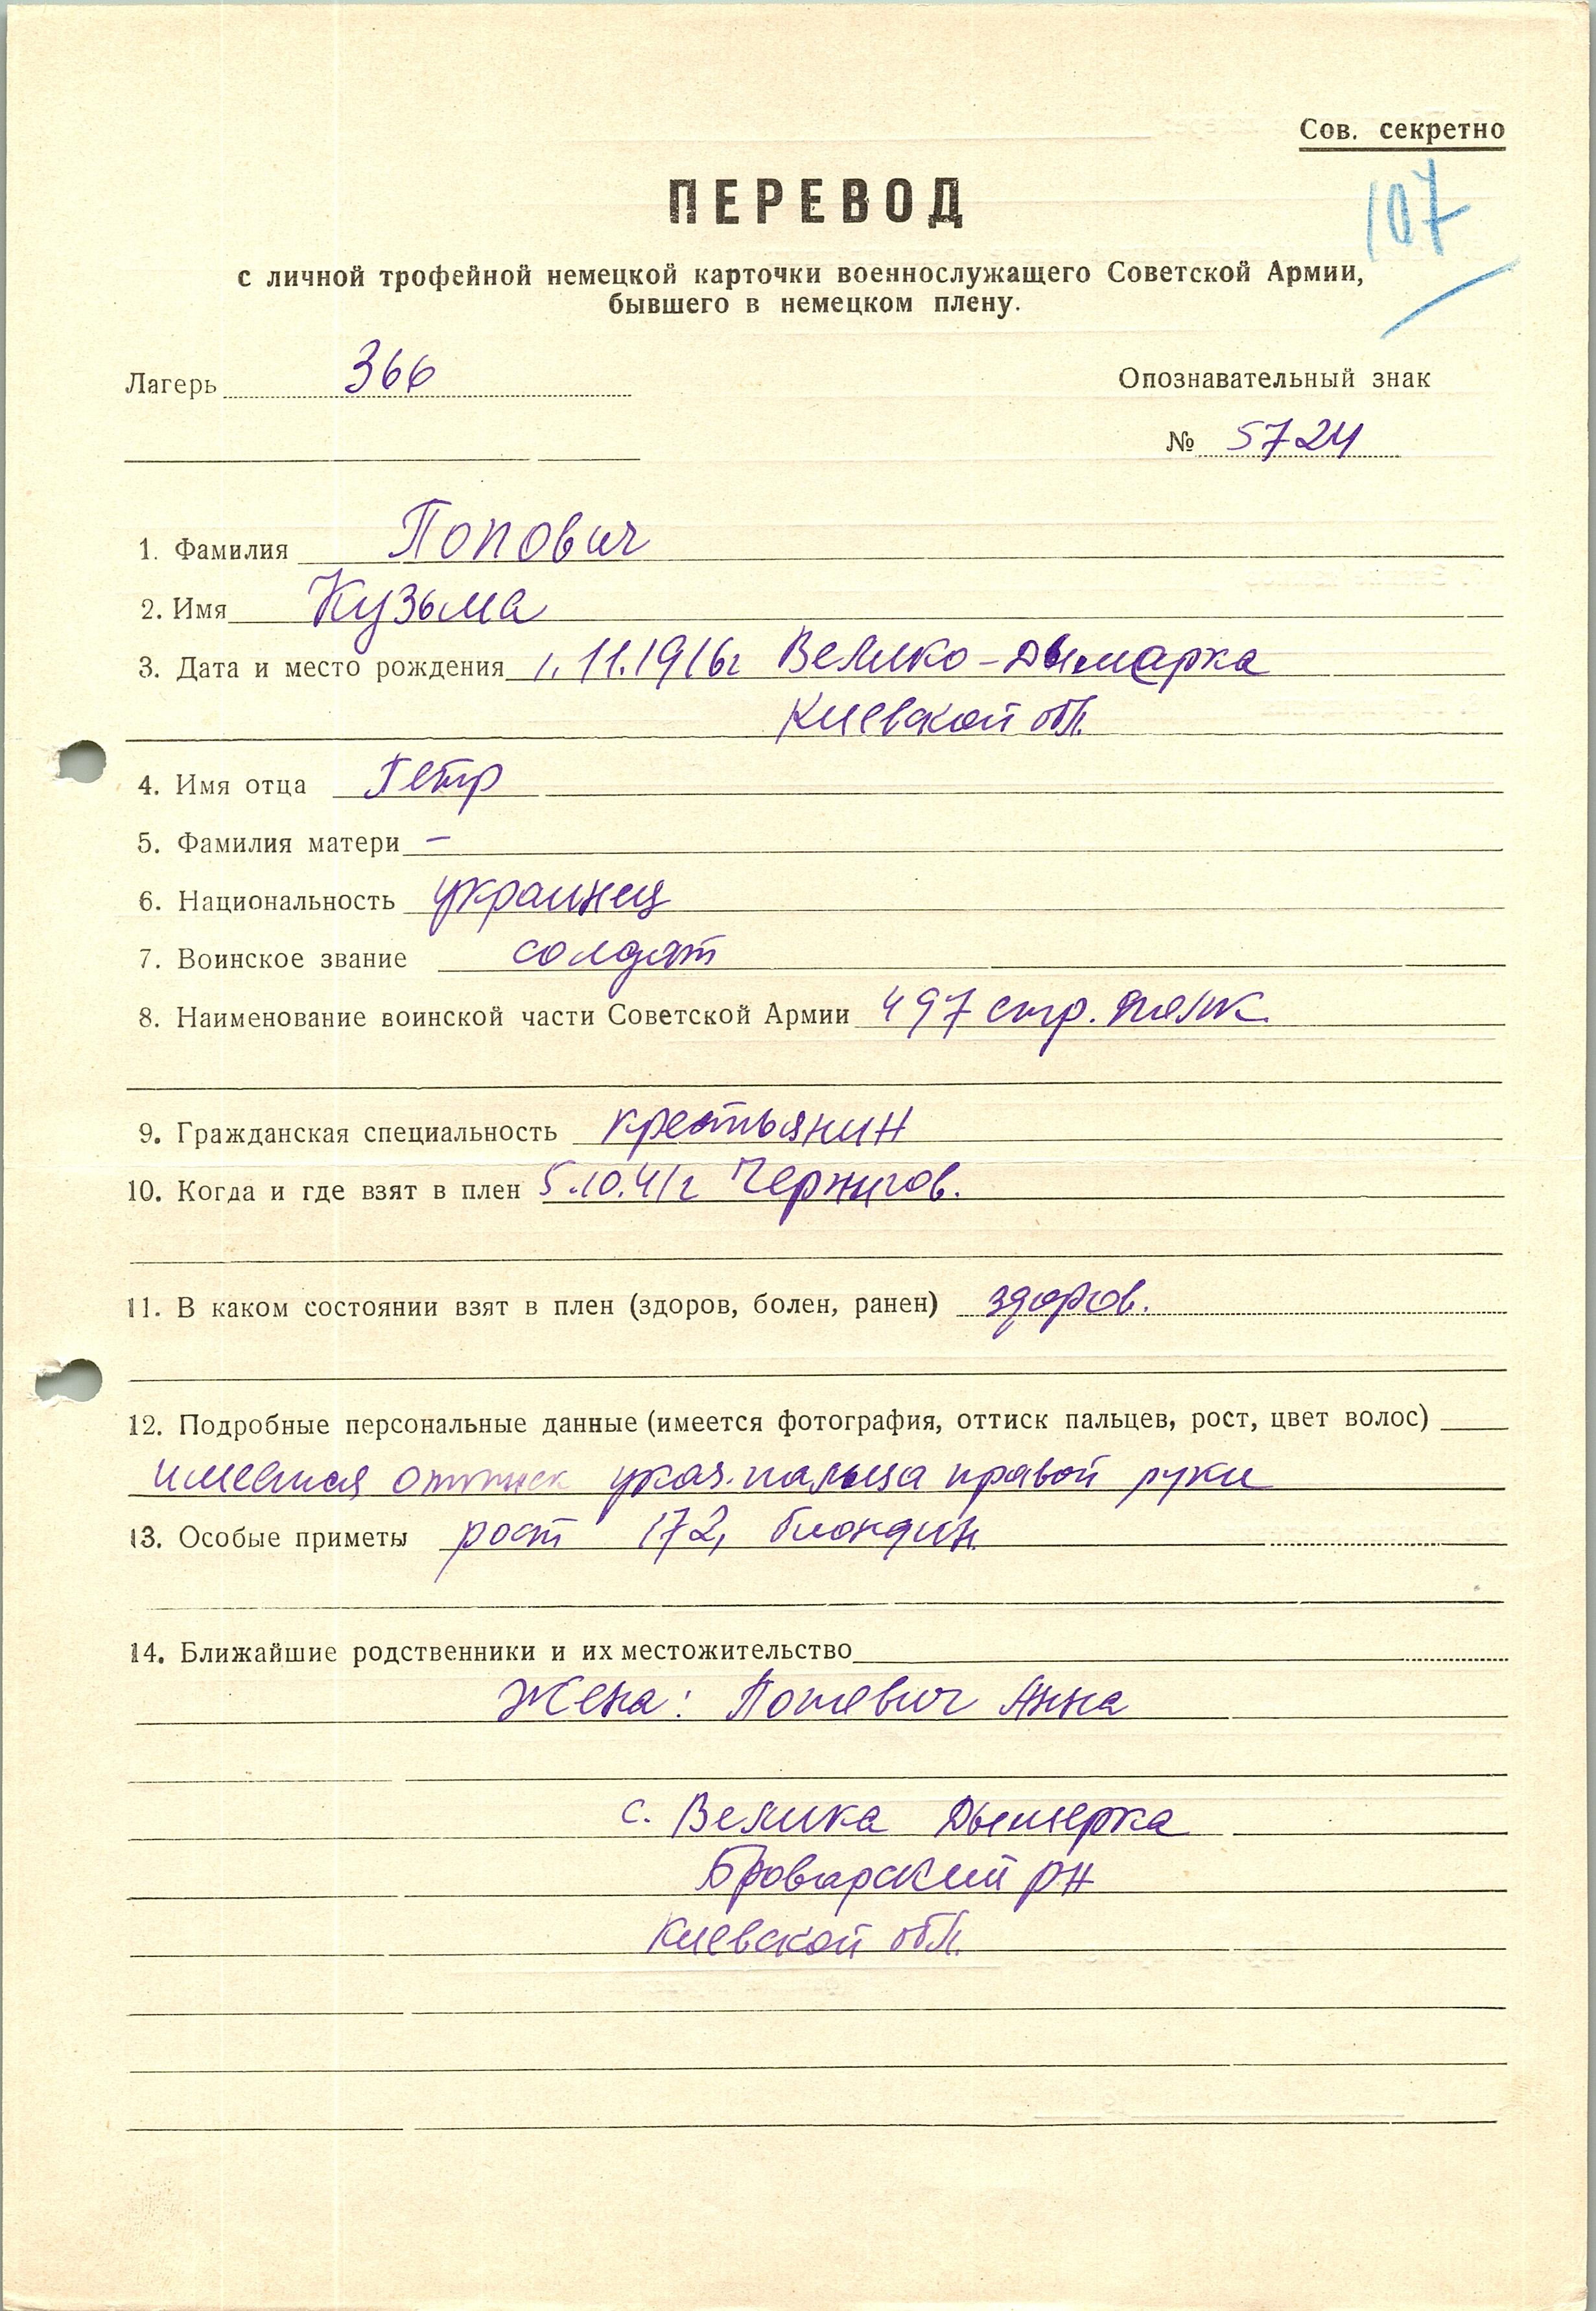 Сов. секретно
107
ПЕРЕВОД
с личной трофейной немецкой карточки военнослужащего Советской Армии,
бывшего в немецком плену.
Лагерь 366
Опознавательный знак
№ 5724
1. Фамилия Попович
2. Имя Кузьма
3. Дата и место рождения 1.11.1916г Велико-Дымарка
Киевской обл.
4. Имя отца Петр
5. Фамилия матери –
6. Национальность украинец
7. Воинское звание солдат
8. Наименование воинской части Советской Армии 497 стр. полк.
9. Гражданская специальность крестьянин
10. Когда и где взят в плен 5.10.41г Чернигов.
11. В каком состоянии взят в плен (здоров, болен, ранен) здоров.
12. Подробные персональные данные (имеется фотография, оттиск пальцев, рост, цвет волос)
имеется оттиск указ. пальца правой руки
13. Особые приметы рост 172, блондин.
14. Ближайшие родственники и их местожительство
Жена: Попович Анна
с. Велика Дымерка
Броварский рн
Киевской обл.